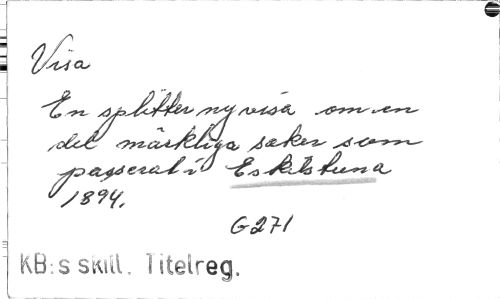 Visa
En splitter ny visa om en
del märkliga saker som
passerat i Eskilstuna
1894.
G271
KB:s skill. Titelreg.